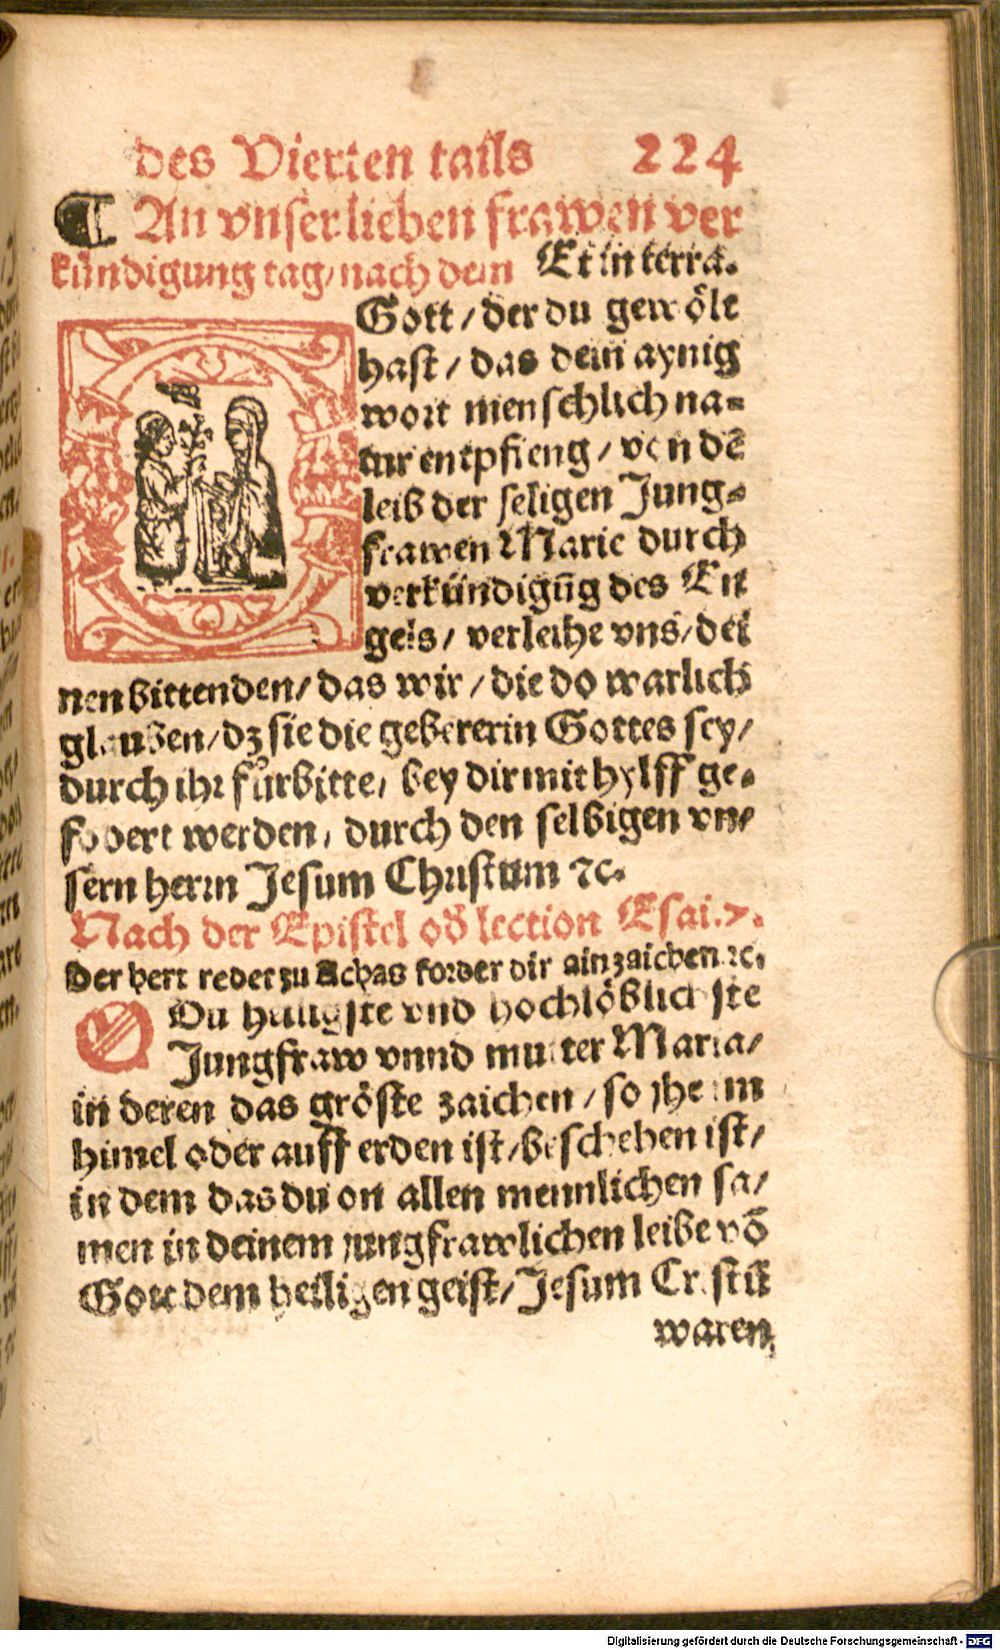 des Vierten tails 224
¶ An vnser lieben frawen ver
kündigung tag/ nach dem Et in terra.
O Gott/ der du gewölt
hast/ das dein aynig
wort menschlich na=
tur entpfieng/ von dē
leib der seligen Jung=
frawen Marie durch
verkündigūg des En
gels/ verleihe vns/ dei
nen bittenden/ das wir/ die do warlich
glauben/ dz sie die gebererin Gottes sey/
durch ihr fürbitte, bey dir mit hylff ge=
fodert werden, durch den selbigen vn=
sern herrn Jesum Christum ꝛc.
Nach der Epistel od̄ lection Esai.7.
Der herr redet zu Achas forder dir ain zaichen ꝛc.
O Du heiligste vnd hochlöblichste
Jungfraw vnnd mutter Maria/
in deren das gröste zaichen/ so yhe im
himel oder auff erden ist/ beschehen ist/
in dem das du on allen mennlichen sa/
men in deinem jungfrawlichen leibe vō
Gott dem heiligen geist/ Jesum Cristū
waren
Digitalisierung gefördert durch die Deutsche Forschungsgemeinschaft - DFG